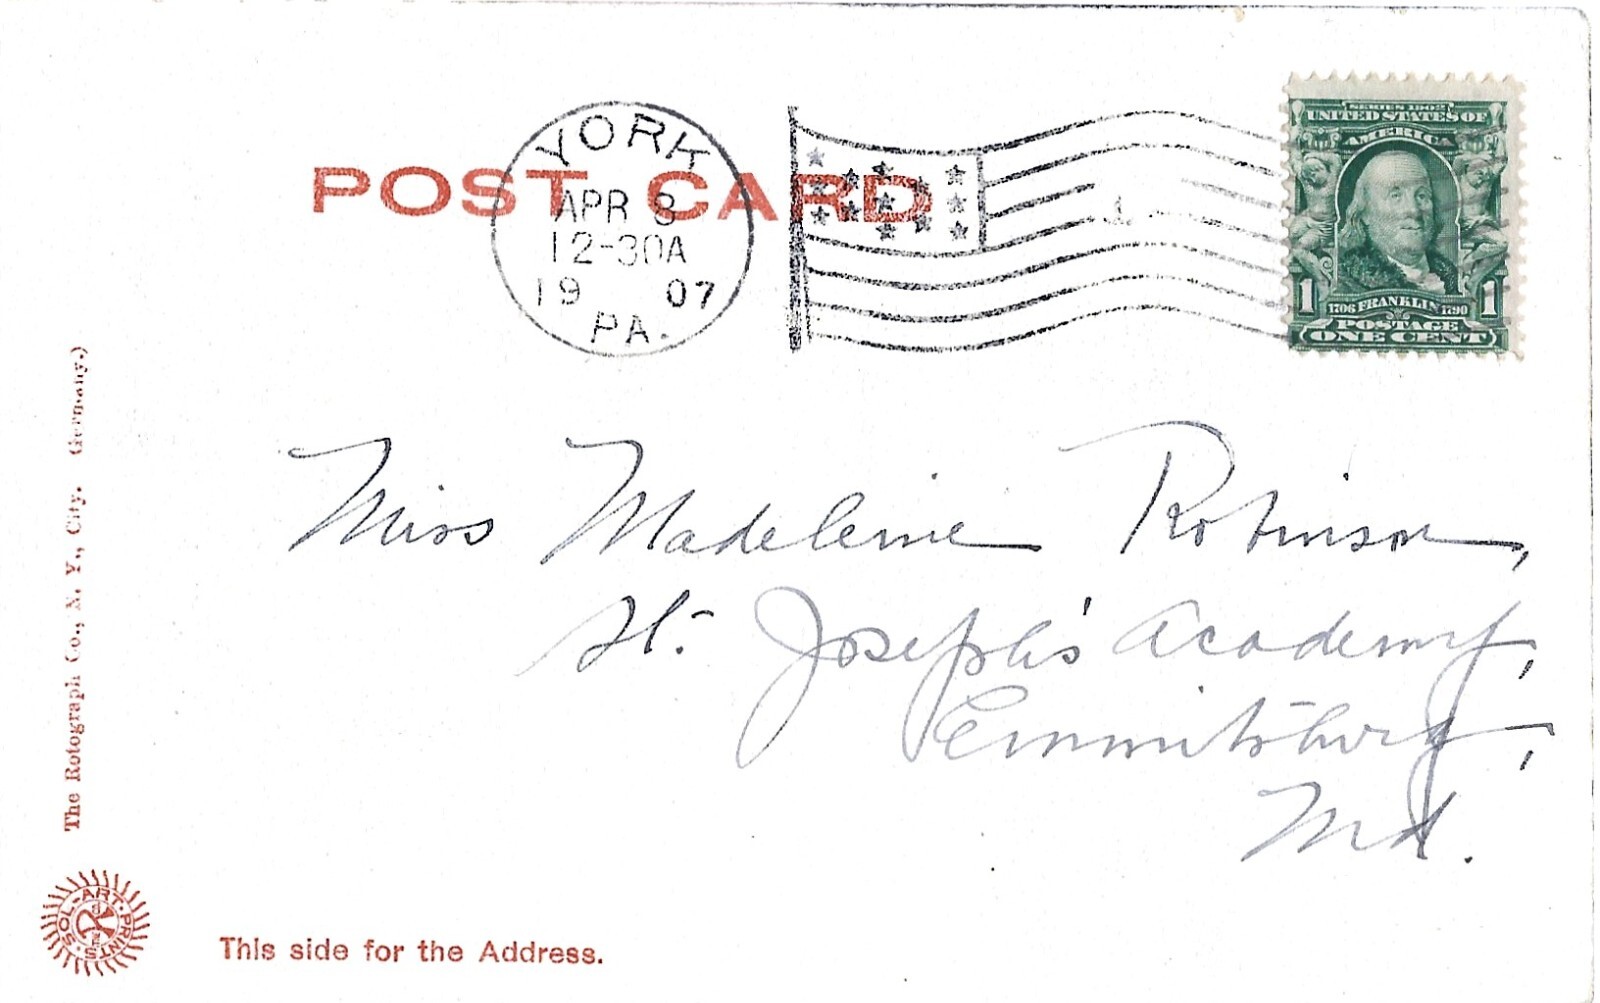 POST CARD
YORK
APR 8
12-30A
1907
PA.
1
SERIES 1902
UNITED STATES OF
AMERICA
1 1706 FRANKLIN 1790 1
POSTAGE
ONE CENT
Miss Madeleine Robinson,
St. Joseph's Academy,
Emmitsburg,
Md.
The Rotograph Co., N. Y., City. (Germany.)
SOL-ART-PRINTS
This side for the Address.